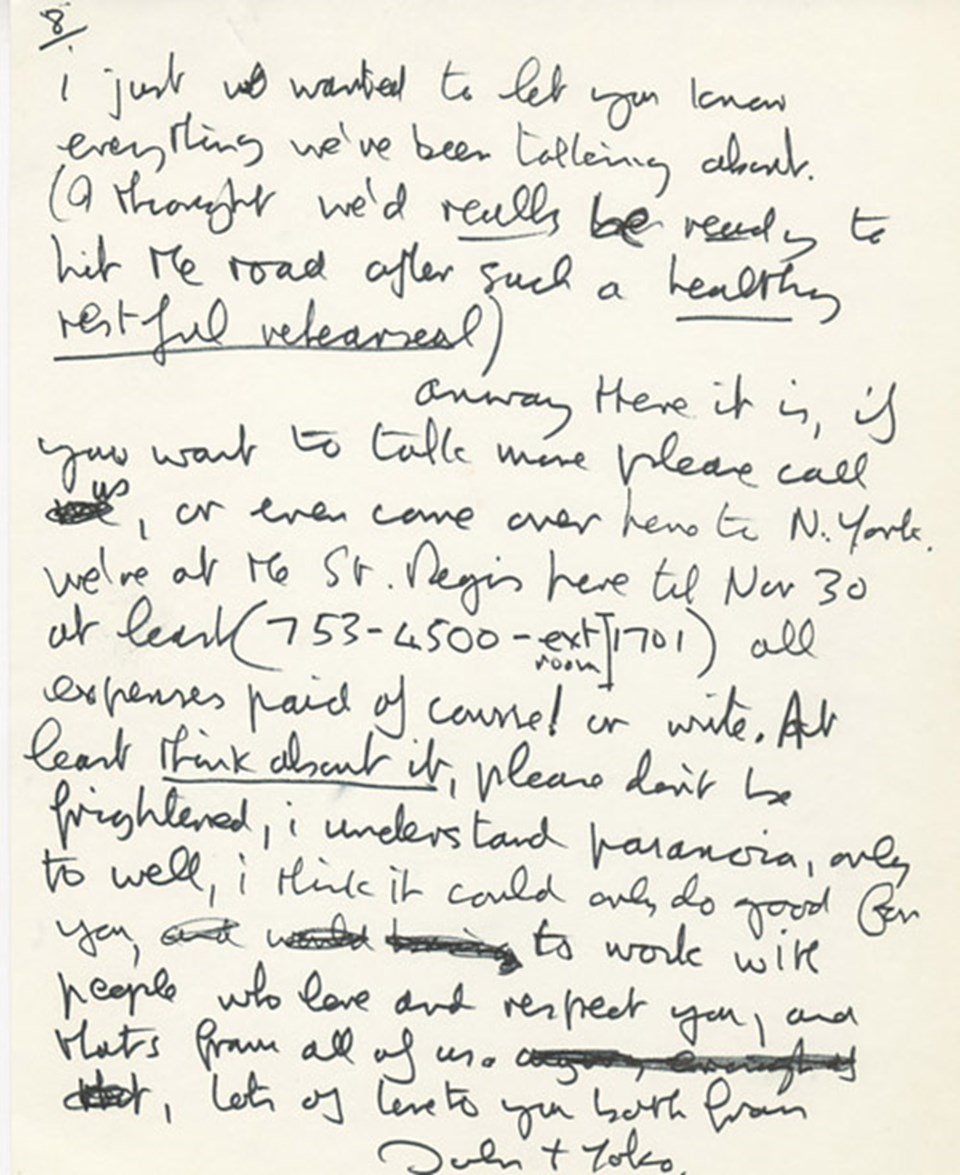 8
i just wanted to let you know
everything we've been talking about.
(I thought we'd really be ready to
hit the road after such a healthy
restful rehearseal)
anway there it is, if
you want to talk more please call
us, or even come over here to N. York.
we're at the St. Regis here til Nov 30
at least (753-4500 - ext]1701) all
room
expenses paid of course! or write. At
least think about it, please don't be
frightened, i understand paranoia, only
to well, i think it could only do good for
you, to work with
people who love and respect you, and
thats from all of us.
, lots of love to you both from
John + Yoko.